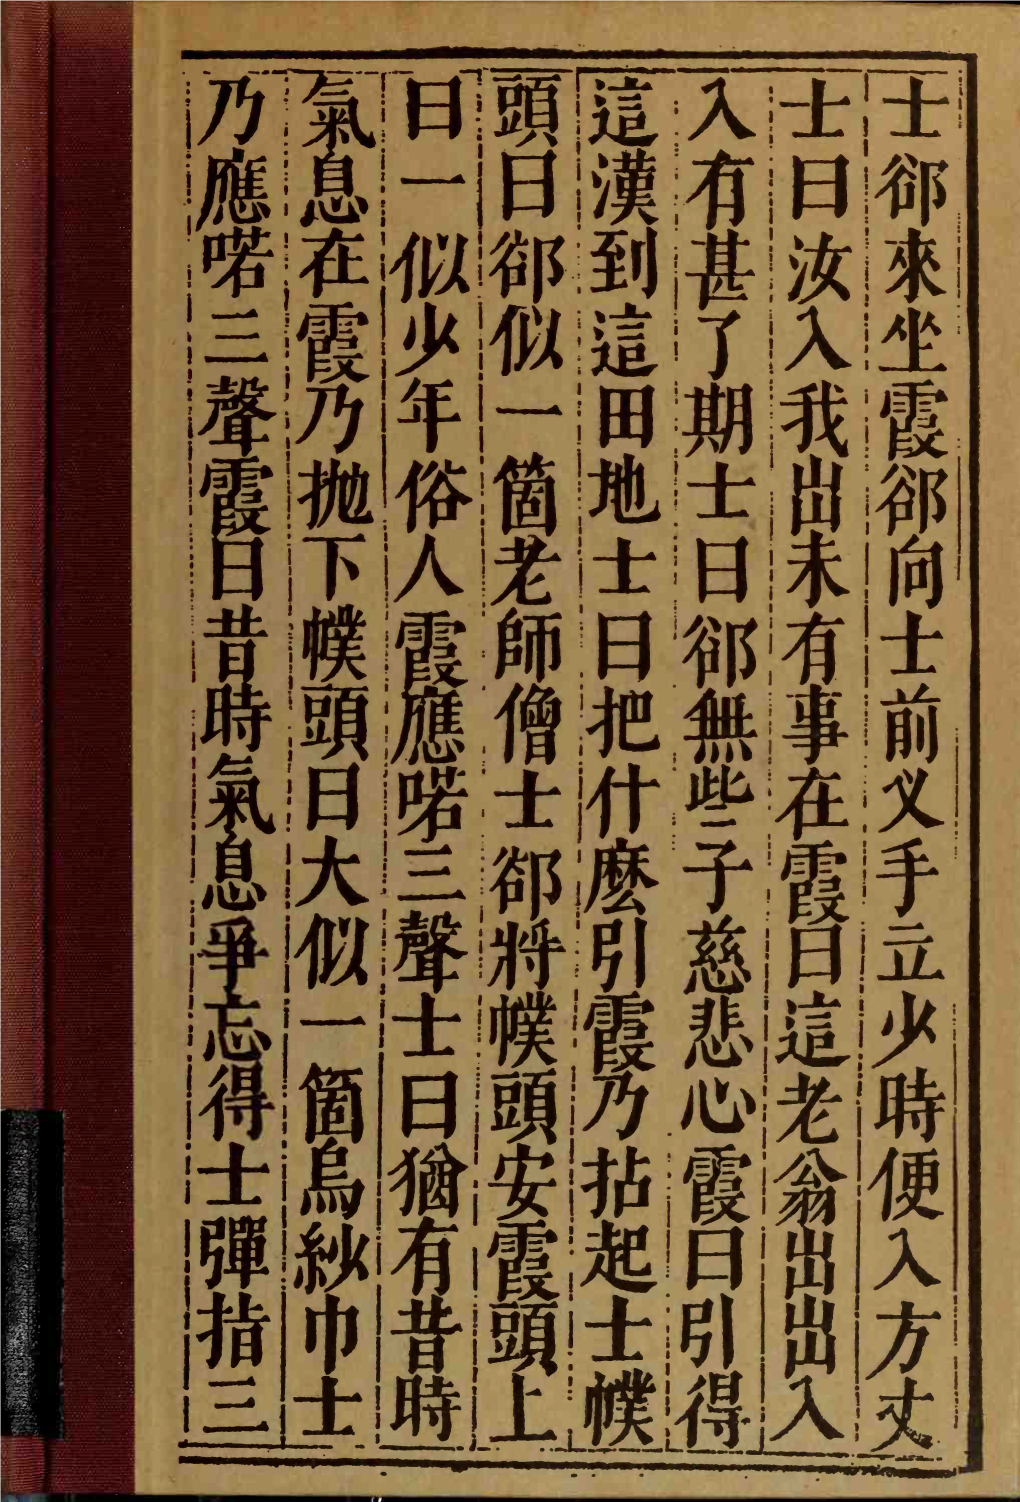 士郤來坐霞郤向士前叉手立少時便入方丈
士曰汝入我出未有事在霞曰這老翁出出入
入有甚了期士曰郤無些子慈悲心霞曰引得
這漢到這田地士曰把什麽引霞乃拈起士幞
頭曰郤似一箇老師僧士郤將幞頭安霞頭上
曰一似少年俗人霞應喏三聲士曰猶有昔時
氣息在霞乃抛下幞頭曰大似一箇烏紗巾士
乃應喏三聲霞曰昔時氣息爭忘得士彈指三